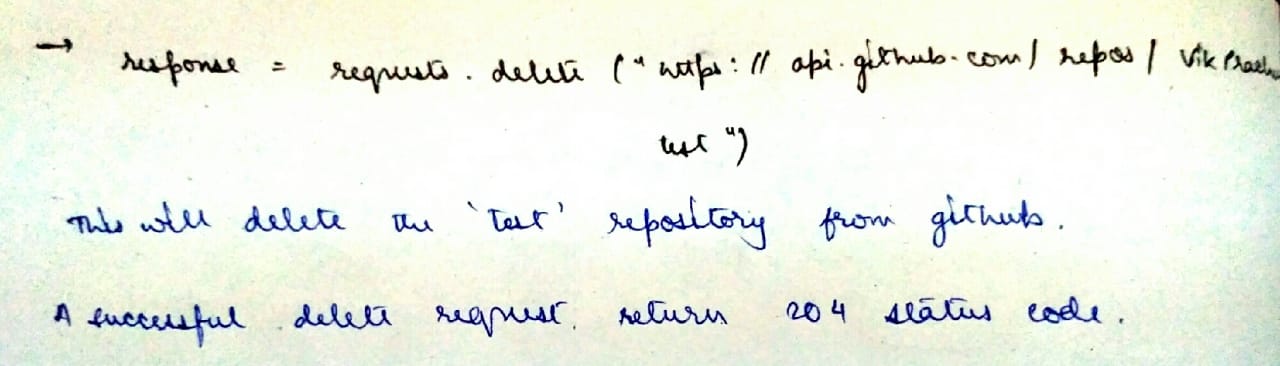 → response = requests.delete ("https://api.github.com/repos/
test")
This will delete the 'test' repository from github.
A successful delete request. return 204 status code.